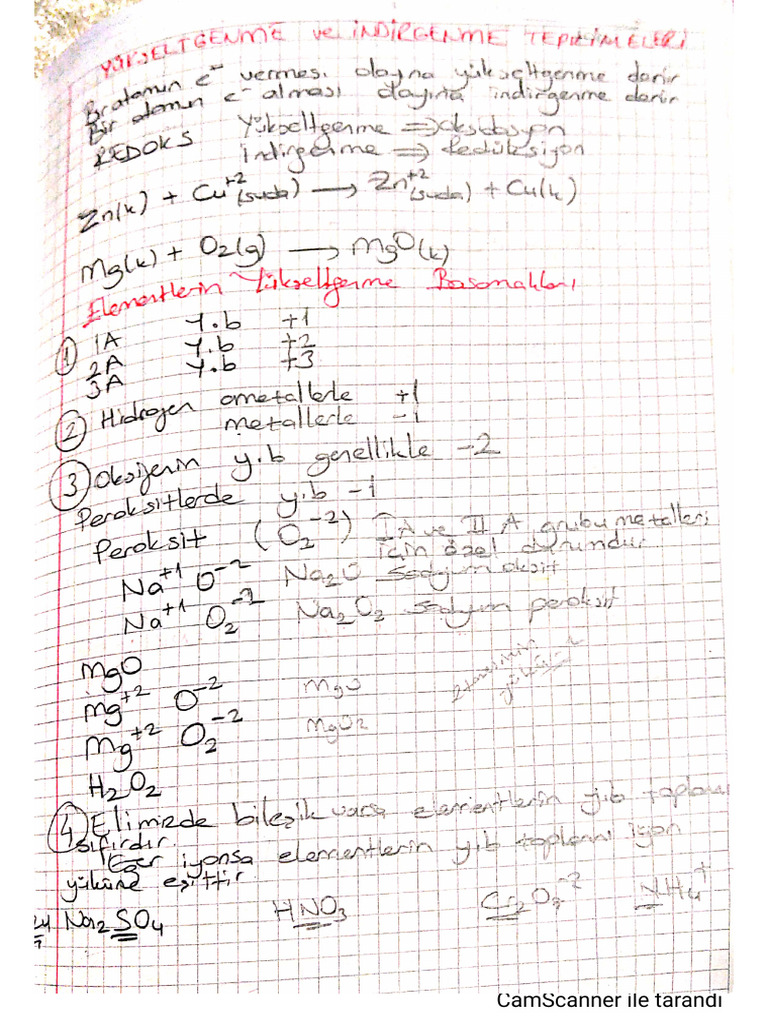 YÜKSELTGENME ve İNDİRGENME TEPKİMELERİ
Bir atomun e⁻ vermesi olayına yükseltgenme denir
Bir atomun e⁻ alması olayına indirgenme denir
REDOKS Yükseltgenme ⇒ oksidasyon
İndirgenme ⇒ Redüksiyon
Zn(k) + Cu⁺²(suda) → Zn⁺²(suda) + Cu(k)
Mg(k) + O₂(g) → MgO(k)
Elementlerin Yükseltgenme Basamakları
① 1A Y.b +1
2A Y.b +2
3A Y.b +3
② Hidrojen ametallerle +1
metallerle -1
③ Oksijenin y.b genellikle -2
Peroksitlerde y.b -1
Peroksit (O₂⁻²) IA ve IIA grubu metalleri
için özel durumdur
Na⁺¹ O⁻² Na₂O Sodyum oksit
Na⁺¹ O₂⁻² Na₂O₂ Sodyum peroksit
MgO
Mg⁺² O⁻² MgO
Mg⁺² O₂⁻² MgO₂
H₂O₂
④ Elimizde bileşik varsa elementlerin y.b toplamı
sıfırdır.
Eğer iyonsa elementlerin y.b toplamı iyon
yüküne eşittir
Na₂SO₄ HNO₃ NH₄⁺
CamScanner ile tarandı